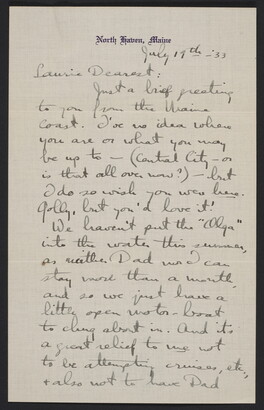 North Haven, Maine
July 19th - '33
Laurie Dearest:
Just a brief greeting
to you from the Maine
Coast. I've no idea where
you are or what you may
be up to — (Central City - or
is that all over now?) — but
I do so wish you were here.
Golly, but you'd love it!
We haven't put the
into the water this summer,
as neither Dad nor I can
stay more than a month,
and so we just have a
little open motor-boat
to chug about in. And it's
a great relief to me not
to be attempting cruises, etc.,
& also not to have Dad